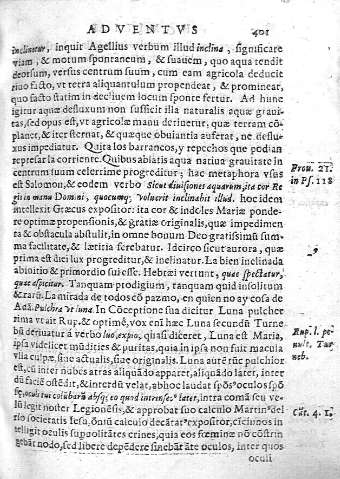 ADVENTVS 401
inclinetur, inquit Agellius verbum illud inclina, significare
viam, & motum spontaneum, & suauem, quo aqua tendit
deorsum, versus centrum suum, cum eam agricola deducit
riuo facto, vt terra aliquantulum propendeat, & promineat,
quo facto statim in decliuem locum sponte fertur. Ad hunc
igitur aquæ defluxum non sufficit illa naturalis aquæ graui-
tas, sed opus est, vt agricolæ manu deriuetur, quæ terram cō-
planet, & iter sternat, & quæque obuiantia auferat, ne deflu-
xus impediatur. Quita los barrancos, y repechos que podian
represar la corriente. Quibus ablatis aqua natiua grauitate in
centrum suum celerrime progreditur; hac metaphora vsus
est Salomon, & eodem verbo Sicut diuisiones aquarum, ita cor Re-
gis in manu Domini, quocumque voluerit inclinabit illud. hoc idem
intellexit Græcus expositor: ita cor & indoles Mariæ ponde-
re optimæ propensionis, & gratiæ originalis, quæ impedimen-
ta & obstacula abstulit, in omne bonum Deo gratissimū sum-
ma facilitate, & lætitia ferebatur. Idcirco sicut aurora, quæ
prima est diei lux progreditur, & inclinatur. La bien inclinada
abinitio & primordio suiesse. Hebræi vertunt, quæ spectatur,
quæ aspicitur. Tanquam prodigium, tanquam quid insolitum
& rarū. La mirada de todos cō pazmo, en quien no ay cosa de
Adā. Pulchra vt luna. In Cōceptione sua dicitur Luna pulcher
rima vt ait Rup. & optimè, vox enī hæc Luna secundū Turne-
bū deriuatur à verbo luo, expio, quasi diceret, Luna est Maria,
ipsa videlicet mūdities & puritas, quia in ipsa non fuit macula
vlla culpæ, siue actualis, siue originalis. Luna autē tūc pulchra
est, cū inter nubes atras aliquādo apparet, aliquādo latet, inter
dū faciē ostēdit, & interdū velat, ab hoc laudat spōs⁹ oculos spō
sæ, oculi tui colūbarū absque eo quod intrinsecꝰ latet, intra comā seu ve-
lū legit noster Legionēsis, & approbat suo calculo Martin⁹ del
rio societatis Iesu, ōnīū calculo decātat⁹ expositor, cicinnos in-
telligit oculis supositæ crines, quia eos fœminæ nō cōstrin
gebāt nodo, sed libere depēdere sinebāt ate oculos, inter quos
oculi
Prou. 21.
in Ps. 118
Rup. l. pe-
nult. Tur-
neb.
Cāt. 4. 1.